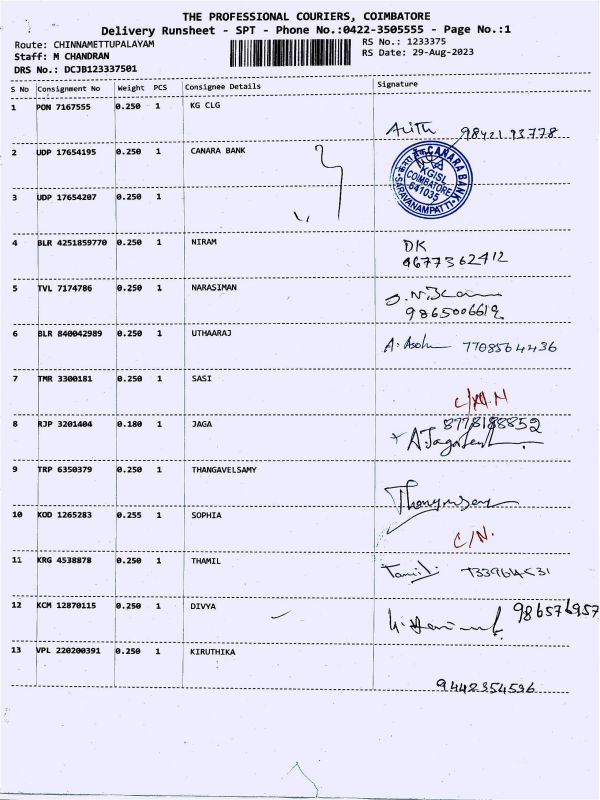 THE PROFESSIONAL COURIERS, COIMBATORE
Delivery Runsheet - SPT - Phone No.:0422-3505555 - Page No.:1
Route: CHINNAMETTUPALAYAM
RS No.: 1233375
Staff: M CHANDRAN
RS Date: 29-Aug-2023
DRS No.: DCJB123337501
S No Consignment No Weight PCS Consignee Details Signature
1 PON 7167555 0.250 1 KG CLG
9842193778
2 UDP 17654195 0.250 1 CANARA BANK
CANARA BANK
KGISL
COIMBATORE
641035
SARAVANAMPATTI
3 UDP 17654207 0.250 1
4 BLR 4251859770 0.250 1 NIRAM
DK
9677362412
5 TVL 7174786 0.250 1 NARASIMAN
9865006612
6 BLR 840042989 0.250 1 UTHAARAJ
A. Asok 7708564436
7 TMR 3300181 0.250 1 SASI
8 RJP 3201404 0.180 1 JAGA
8778188852
9 TRP 6350379 0.250 1 THANGAVELSAMY
10 KOD 1265283 0.255 1 SOPHIA
C/N.
11 KRG 4538878 0.250 1 THAMIL
Tamil
12 KCM 12870115 0.250 1 DIVYA
986576957
13 VPL 220200391 0.250 1 KIRUTHIKA
9442354536